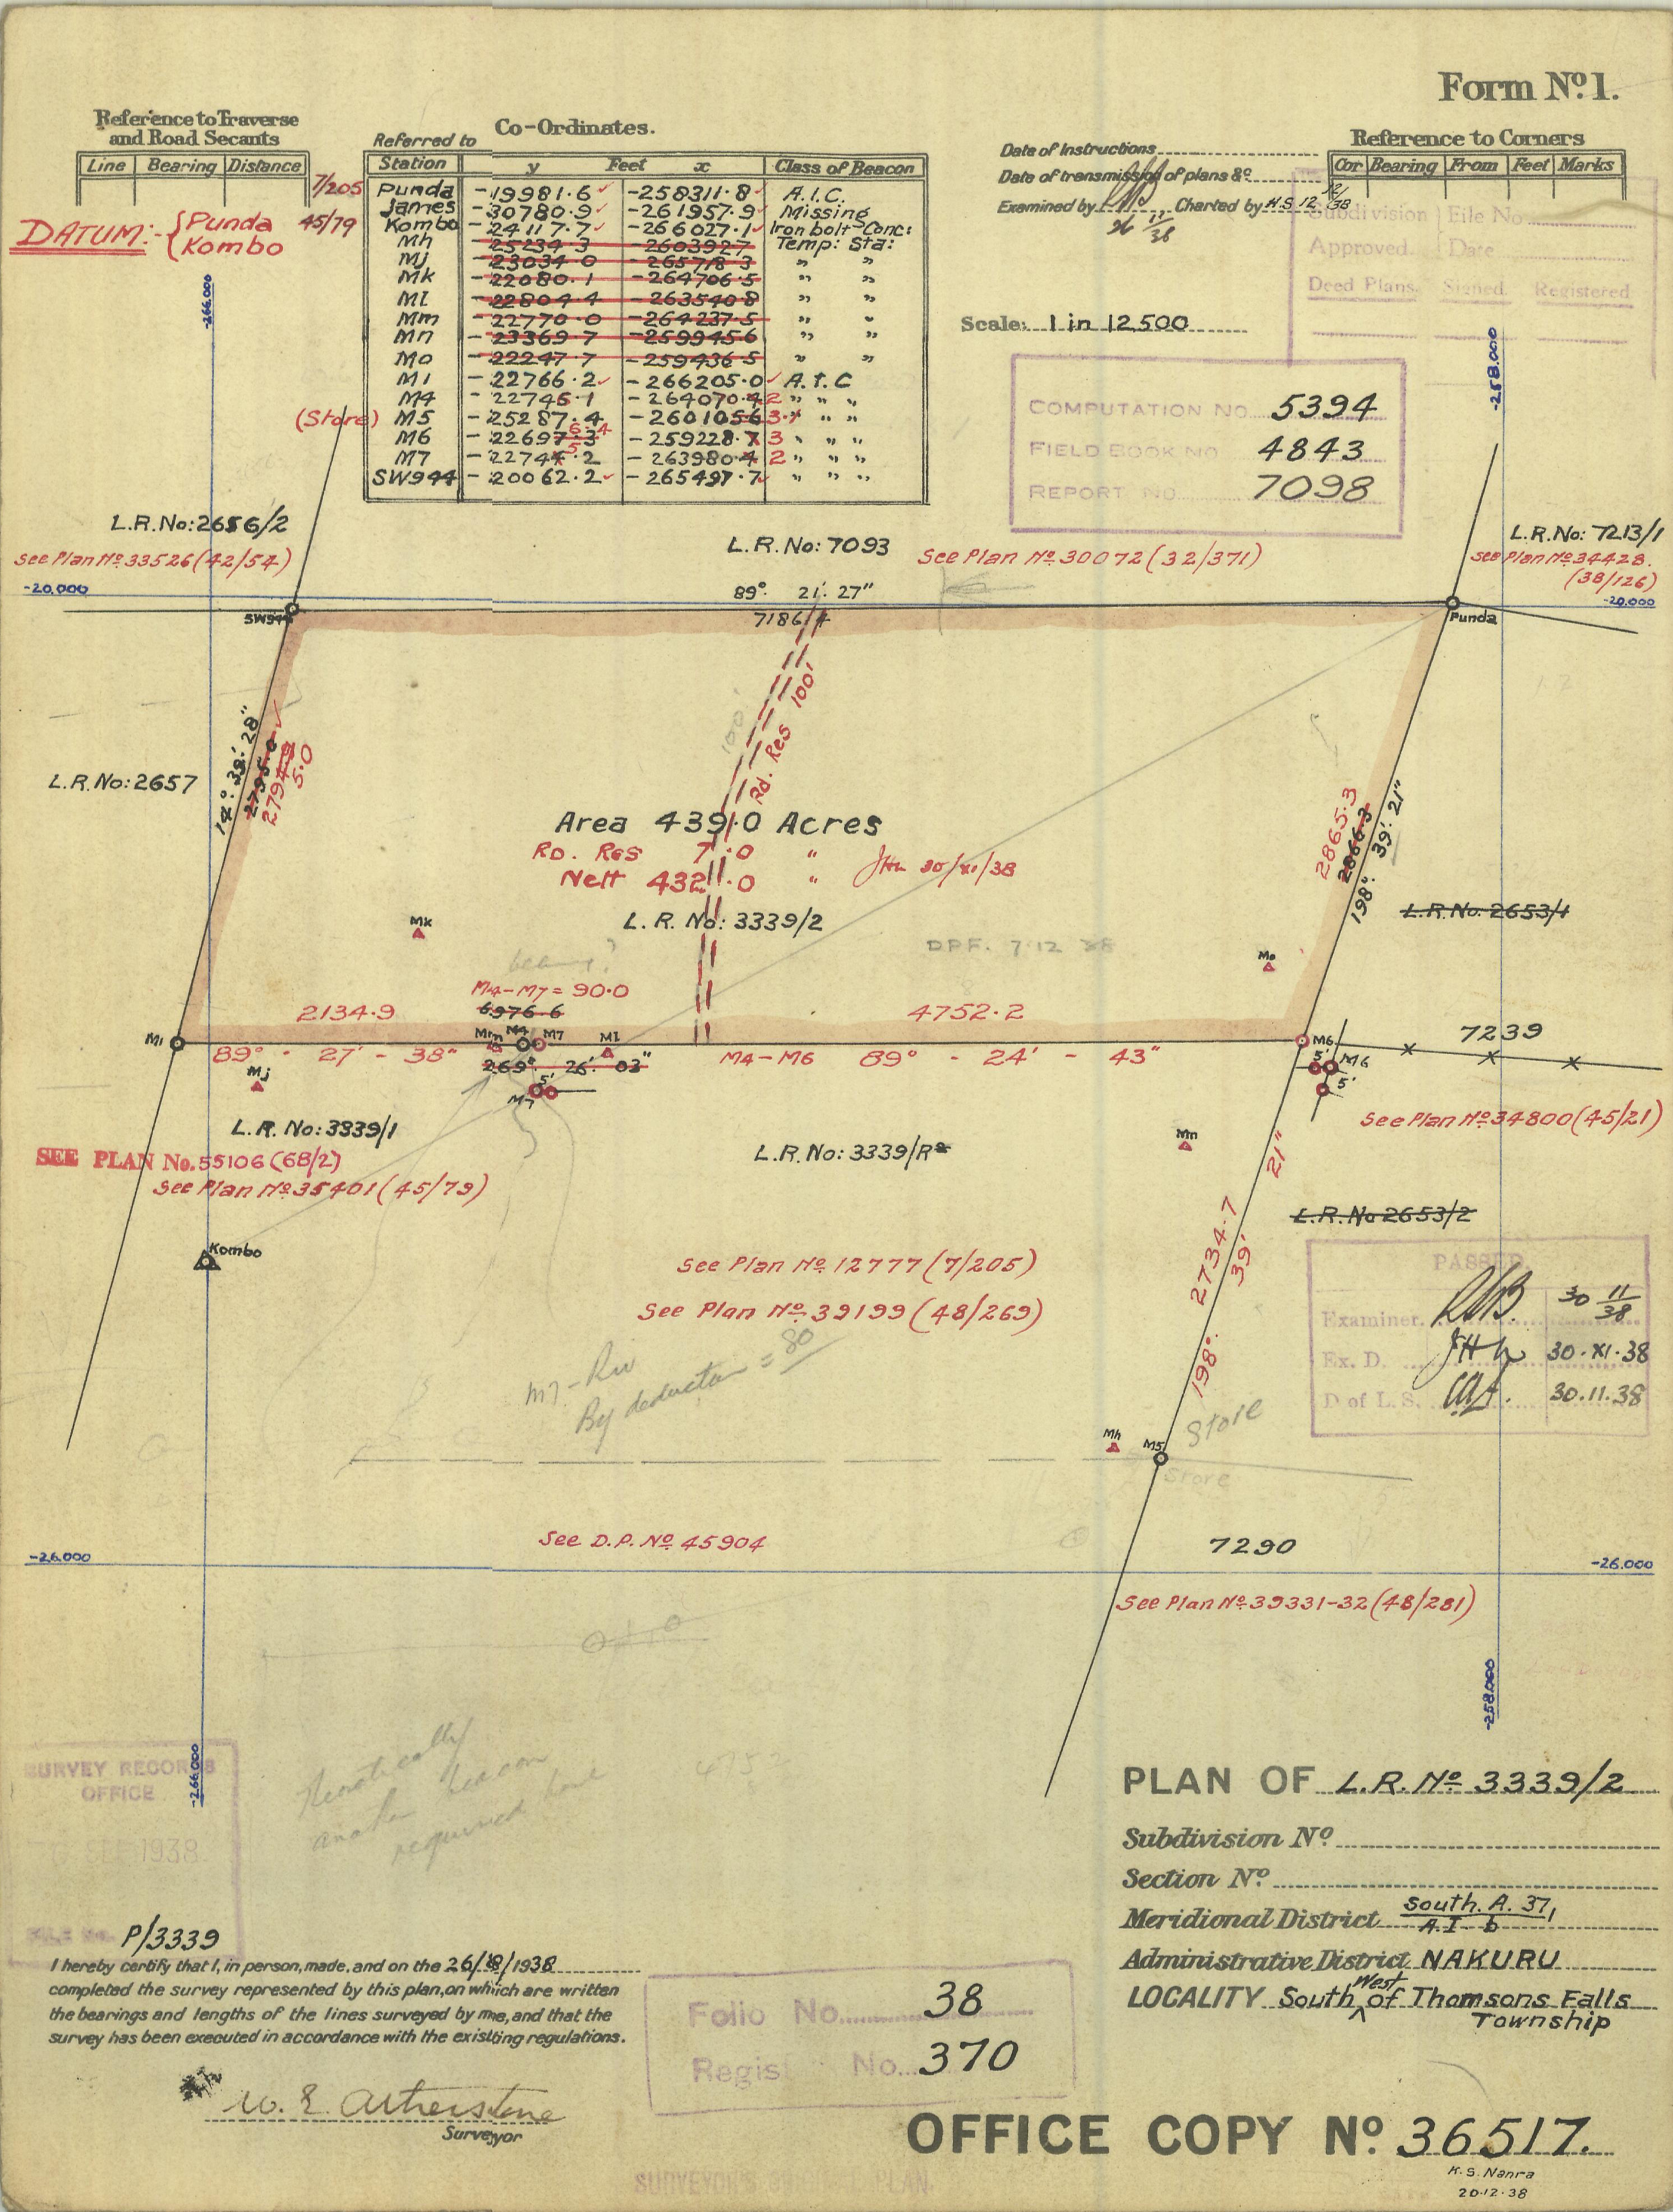 Form Nº 1.
Reference to Traverse
and Road Secants
Line Bearing Distance
DATUM:- { Punda 7/205
Kombo 45/79
Co-Ordinates.
Referred to
Station y Feet x Class of Beacon
Punda -19981.6 -258311.8 A.I.C.
James -30780.9 -261957.9 Missing
Kombo -24117.7 -266027.1 Iron bolt Conc:
Mh -25234.3 -260392.7 Temp: Sta:
Mj -23034.0 -265718.3 " "
Mk -22080.1 -264706.5 " "
Ml -22804.4 -263540.8 " "
Mm -22770.0 -264237.5 " "
Mn -23369.7 -259945.6 " "
Mo -22247.7 -259436.5 " "
M1 -22766.2 -266205.0 A.I.C
M4 -22746.1 -264070.42 " " "
(Store) M5 -25287.4 -260105.6 3.7 " " "
M6 -22697.3 6.4 -259228.7 3 " " "
M7 -22744.2 5 -263980.4 2 " " "
SW944 -20062.2 -265497.7 " " "
Date of Instructions
Date of transmission of plans &c
Examined by 26 11/38 Charted by H.S. 12 12/38
Reference to Corners
Cor Bearing From Feet Marks
Subdivision File No
Approved. Date
Deed Plans. Signed. Registered
Scale: 1 in 12,500
COMPUTATION NO 5394
FIELD BOOK NO 4843
REPORT NO 7098
-266.000
-258.000
L.R.No:2656/2
See Plan Nº 33526 (42/54)
L.R.No:7093
See Plan Nº 30072 (32/371)
L.R.No: 7213/1
See Plan Nº 34428
(38/126)
-20.000
89° 21' 27"
-20.000
SW944
7186.4
Punda
Rd. Res 100'
100'
14° 39' 28"
2795.0
2794.9
5.0
L.R.No:2657
2865.3
2866.3
198° 39' 21"
Area 439.0 Acres
Rd. Res 7.0 "
Nett 432.0 " JHh 30/XI/38
L.R.No: 3339/2
L.R.No. 2653/1
Mk
DPF. 7.12 38
Mo
M4-M7 = 90.0
2134.9
6976.6
4752.2
M1
Mm M4 M7 Ml
M6
7239
89° - 27' - 38"
M4-M6 89° - 24' - 43"
Mj
269° 26' 03"
5'
M7
5' M6
5'
L.R.No:3339/1
L.R.No:3339/R
Mn
See Plan Nº 34800 (45/21)
SEE PLAN No. 55106 (68/2)
See Plan Nº 35401 (45/79)
L.R.No 2653/2
Kombo
2734.7
198° 39' 21"
See Plan Nº 12777 (7/205)
See Plan Nº 39199 (48/269)
M7-Riv
By deduction = 80
PASSED
Examiner. 30 11/38
Ex. D. JHh 30.XI.38
D of L.S. 30.11.38
Mh
M5
Store
Store
See D.P. Nº 45904
7290
-26.000
-26.000
See Plan Nº 39331-32 (48/281)
-266.000
-258.000
Theoretically
another beacon
required here
4752
SURVEY RECORDS
OFFICE
1938
P/3339
I hereby certify that I, in person, made, and on the 26/8/1938
completed the survey represented by this plan, on which are written
the bearings and lengths of the lines surveyed by me, and that the
survey has been executed in accordance with the existing regulations.
W. E. Atherstone
Surveyor
Folio No. 38
Regist No. 370
PLAN OF L.R. Nº 3339/2
Subdivision Nº
Section Nº
Meridional District South. A. 37,
A.I b
Administrative District NAKURU
LOCALITY South West of Thomsons Falls
Township
OFFICE COPY Nº 36517.
K.S. Nanra
20.12.38